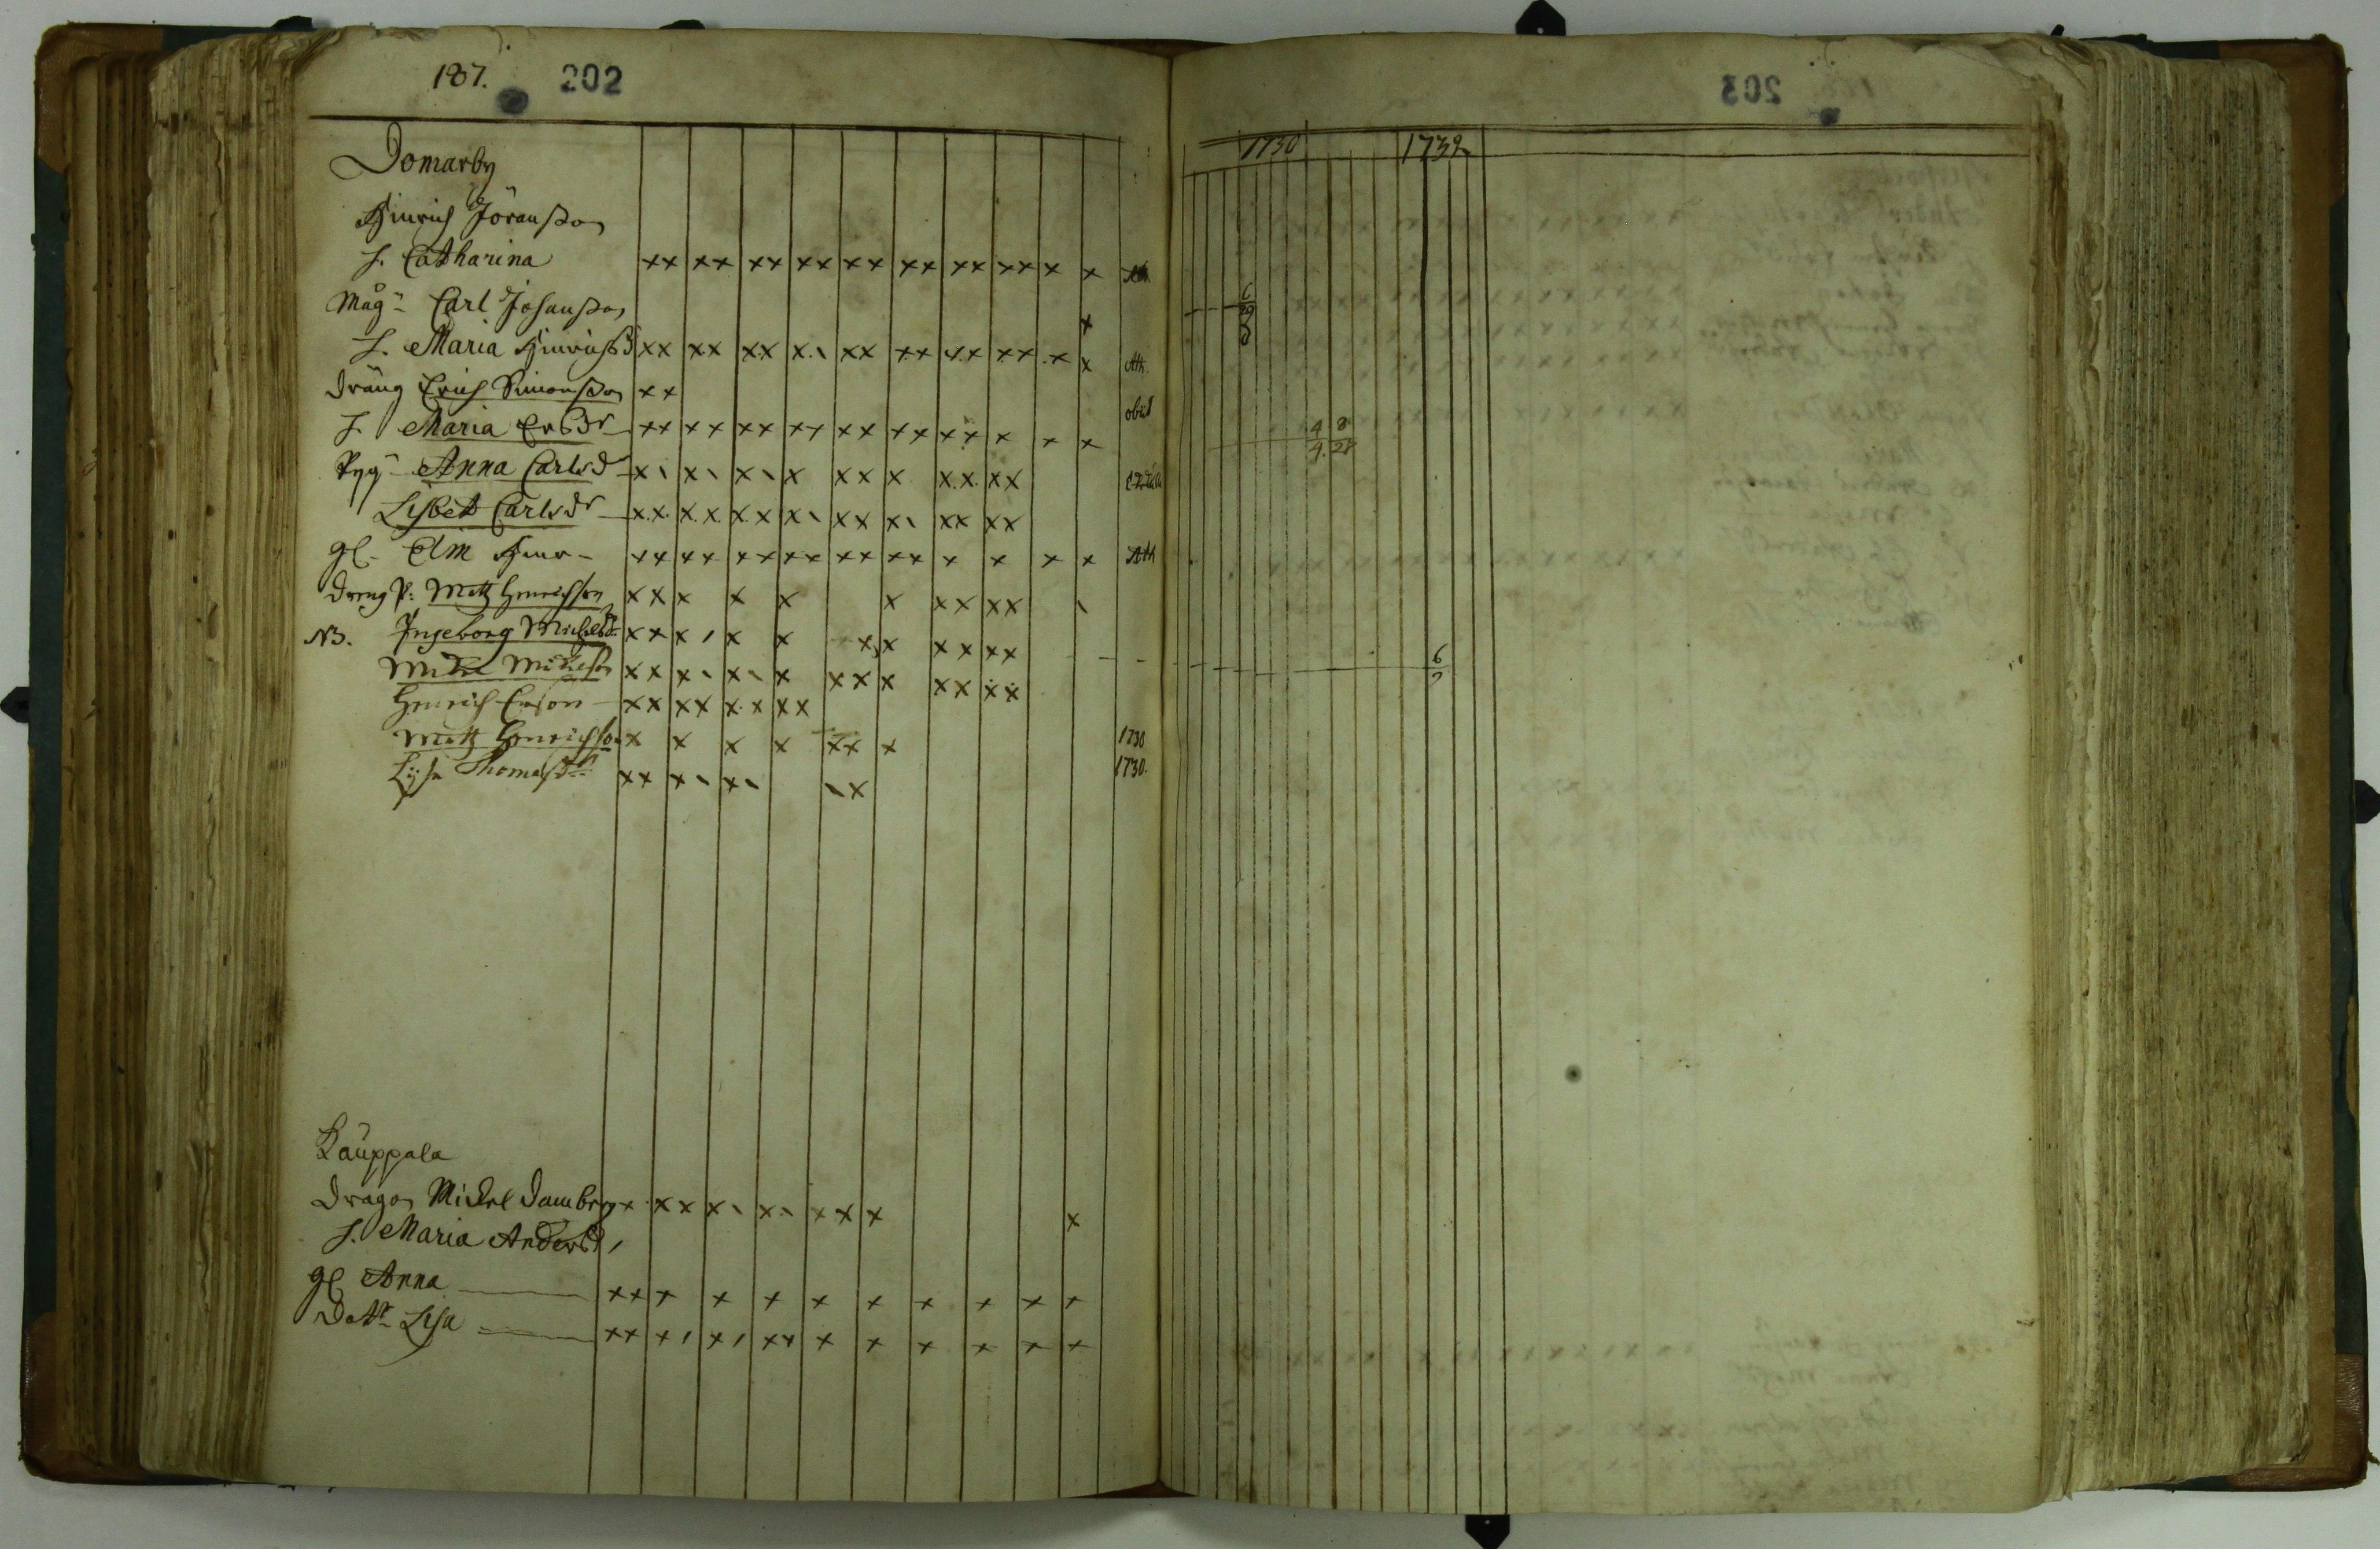 187. 202
Domarby
Hinrich Jöransson
h. Catharina xx xx xx xx xx xx xx xx x x
Måg Carl Johansson x
h. Maria Hinrichsd xx xx xx x xx xx xx xx x x Att.
Dräng Erich Simonsson xx obiit
h. Maria Ersdr xx xx xx xx xx xx xx x x x
Pyg Anna Carlsd x x x x xx x xx xx
Lisbet Carlsdr xx xx xx x xx x xx xx
gl. Elin Hinr xx xx xx xx xx xx x x x x Att
Dreng P: Matz Henrichson xx x x x x xx xx
NB. Ingeborg Michelsdr xx x x x x x xx xx
Mickel Mickelson xx x x x xx x xx xx
Henrich Erson xx xx xx xx
Matz Henrichson x x x x xx x 1730
Lisa Thomasdr xx x x x 1730.
Kauppala
Dragon Mickel Damberg x xx x x x x x x
h. Maria Andersd
gl Anna xx x x x x x x x x x
Dottr Lisa xx x x xx x x x x x x
203
1730 1732
6
4 8
9. 28
6